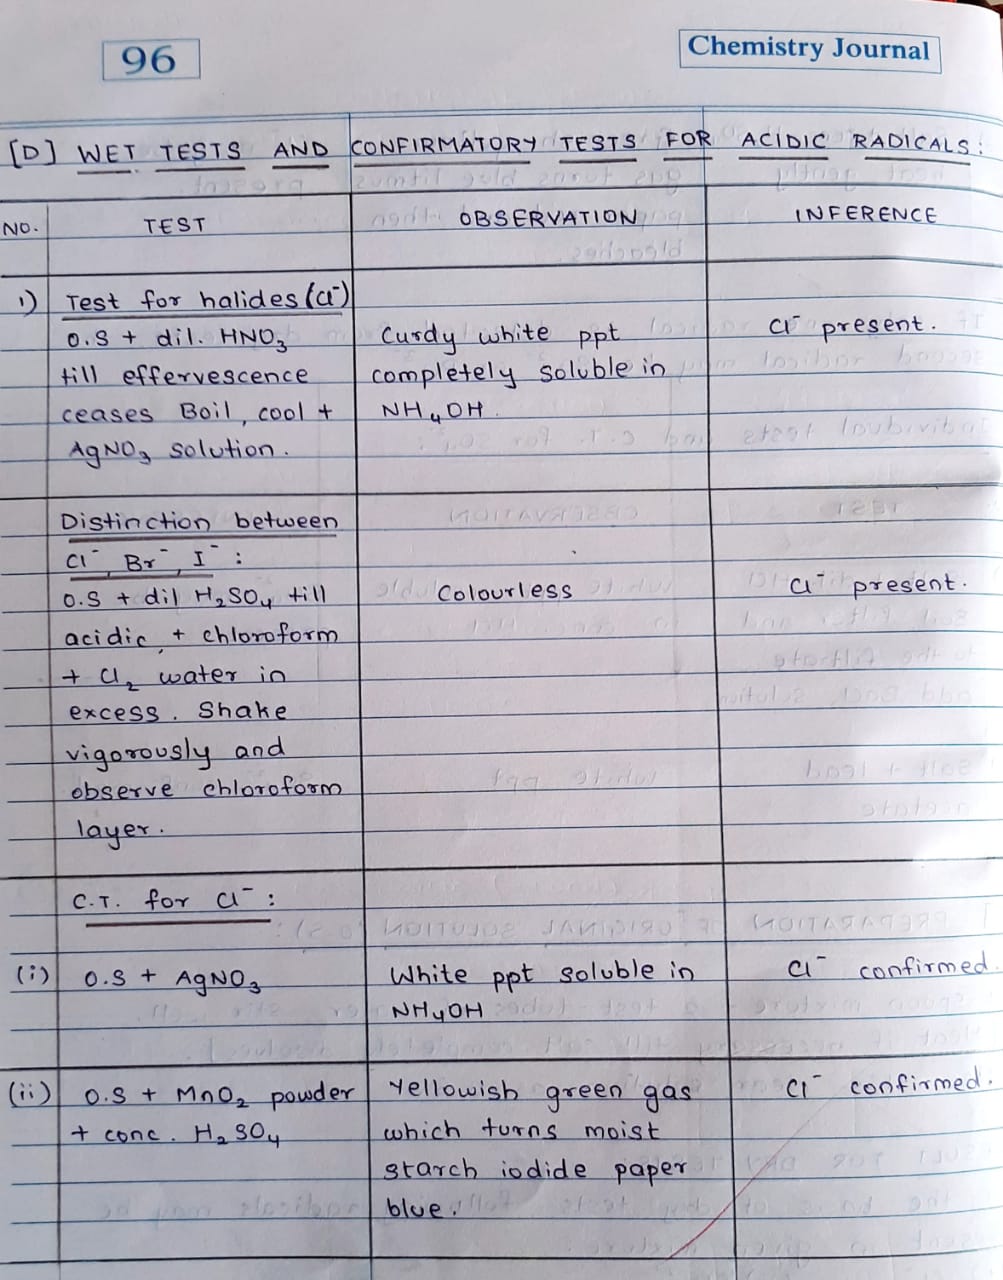 96
Chemistry Journal
[D] WET TESTS AND CONFIRMATORY TESTS FOR ACIDIC RADICALS:
NO. TEST OBSERVATION INFERENCE
1) Test for halides (Cl⁻)
O.S + dil. HNO₃ Curdy white ppt Cl⁻ present.
till effervescence completely soluble in
ceases Boil, cool + NH₄OH.
AgNO₃ solution.
Distinction between
Cl⁻, Br⁻, I⁻ :
O.S + dil H₂SO₄ till Colourless Cl⁻ present.
acidic + chloroform
+ Cl₂ water in
excess. Shake
vigorously and
observe chloroform
layer.
C.T. for Cl⁻ :
(i) O.S + AgNO₃ White ppt soluble in Cl⁻ confirmed.
NH₄OH
(ii) O.S + MnO₂ powder Yellowish green gas Cl⁻ confirmed.
+ conc. H₂SO₄ which turns moist
starch iodide paper
blue.